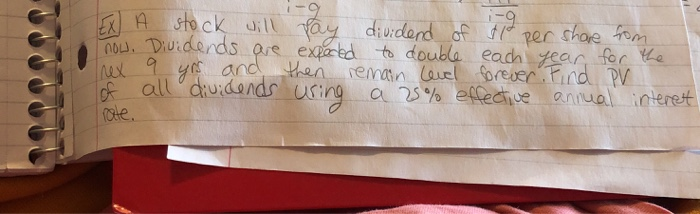 i-g
i-g
Ex A stock will pay dividend of $1 per share from
now. Dividends are expected to double each year for the
nex 9 yrs and then remain level forever. Find PV
of all dividends using a 25% effective annual interest
rate.